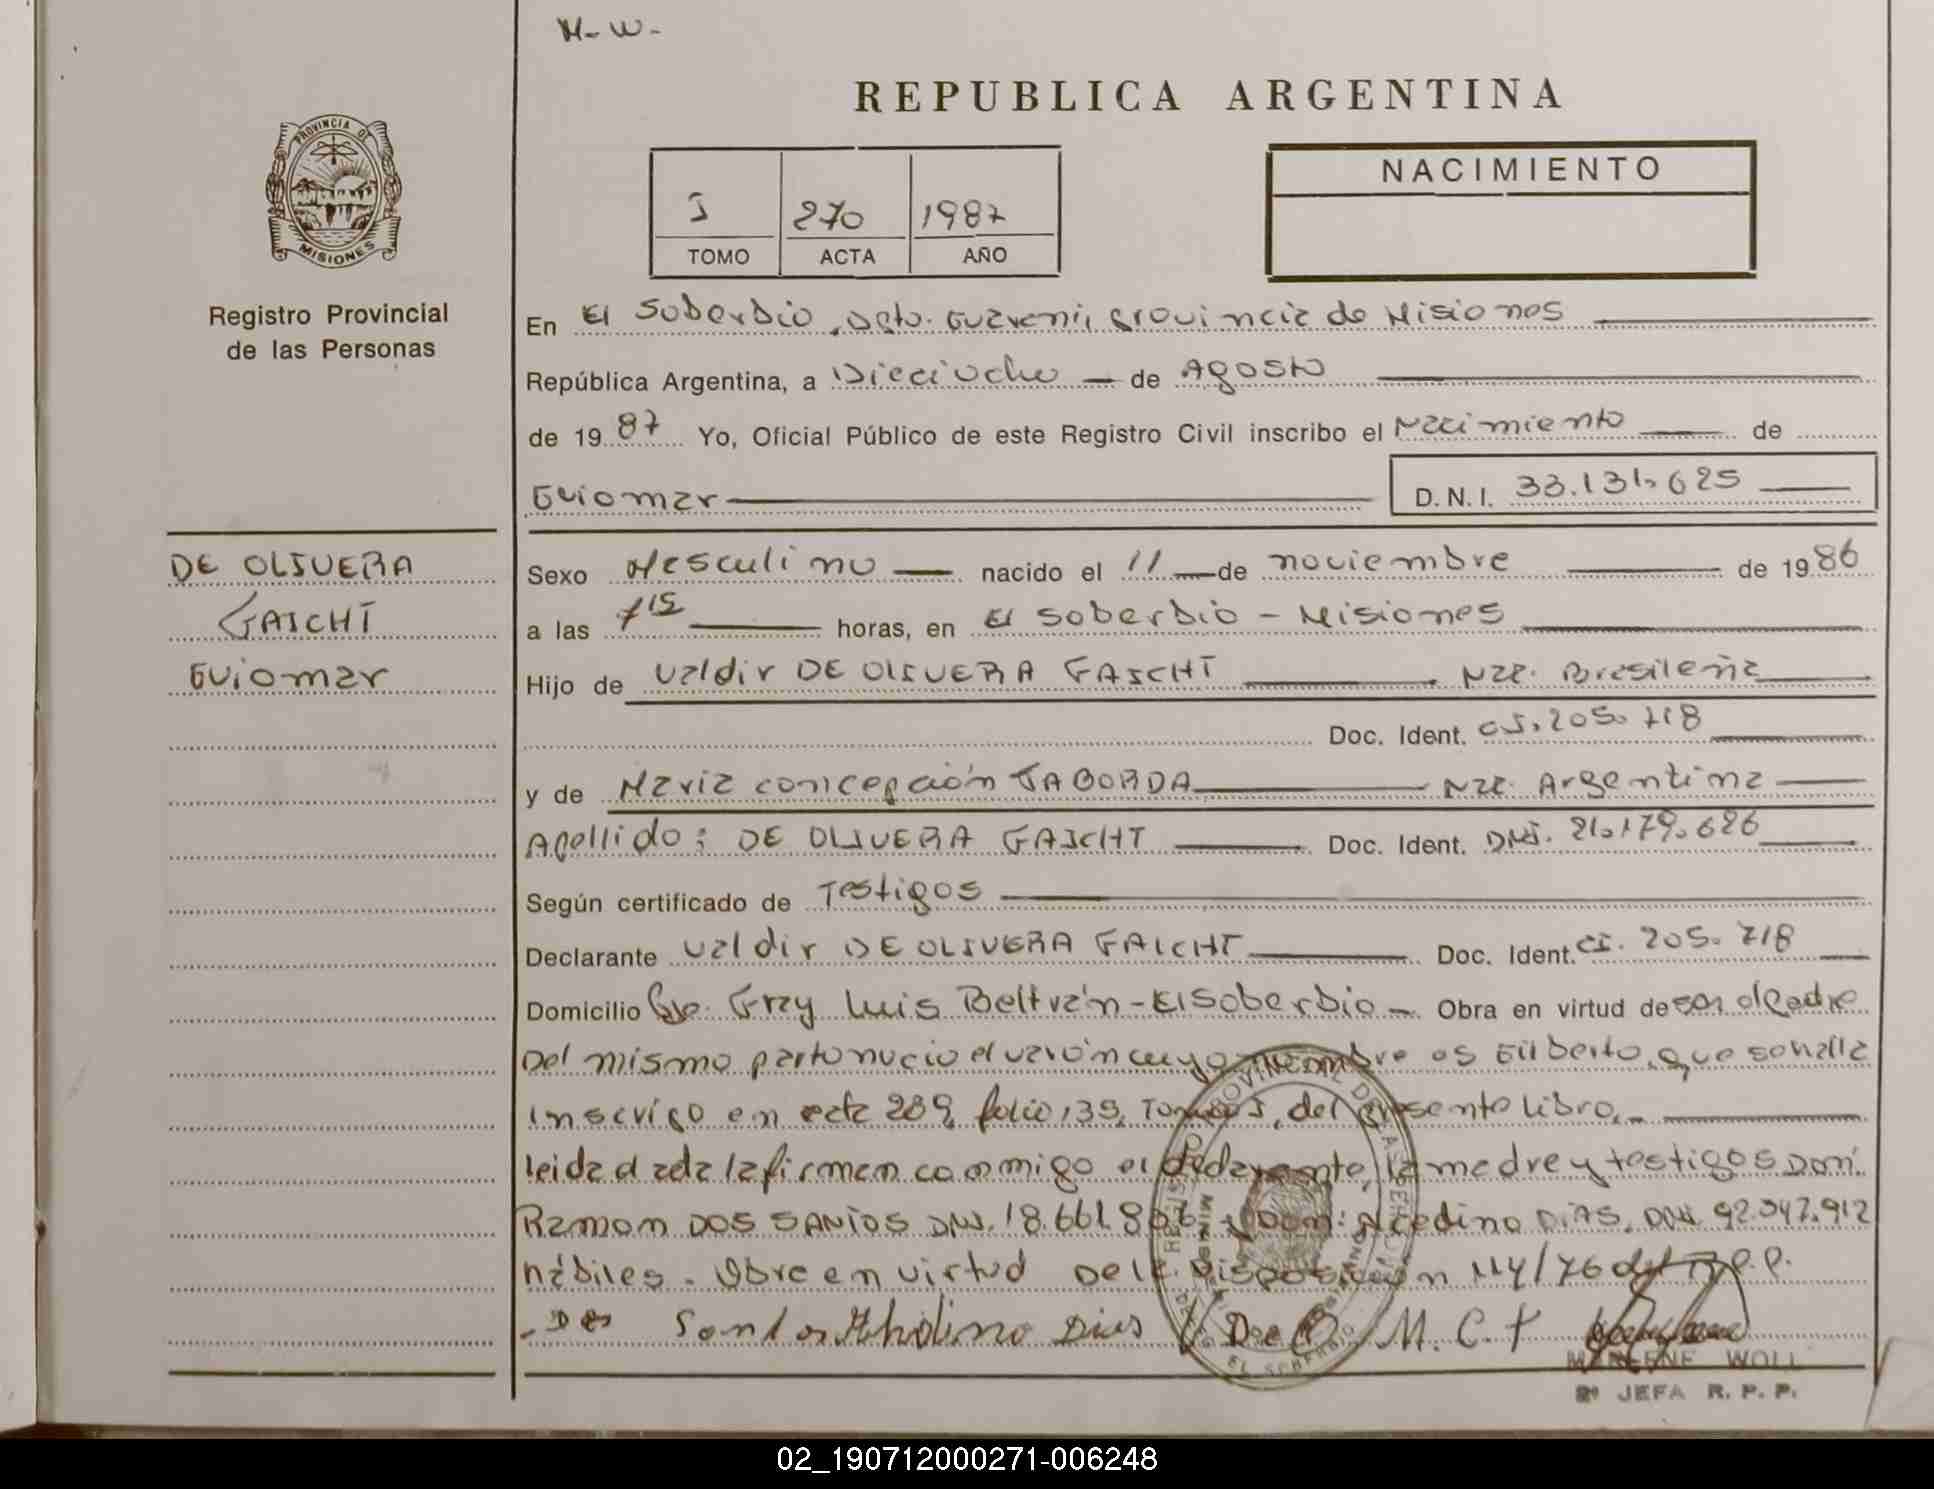 M- W-
REPUBLICA ARGENTINA
PROVINCIA DE
MISIONES
Registro Provincial
de las Personas
I 270 1987
TOMO ACTA AÑO
NACIMIENTO
En El Soberbio, Dpto. Guarani, provincia de Misiones
República Argentina, a Dieciocho de Agosto
de 1987 Yo, Oficial Público de este Registro Civil inscribo el Nacimiento de
Guiomar D.N.I. 33.131.625
DE OLIVERA
GAICHT
Guiomar
Sexo Masculino nacido el 11 de noviembre de 1986
a las 7 15 horas, en El Soberbio - Misiones
Hijo de Valdir DE OLIVERA GAICHT Nac. Brasileña
Doc. Ident. CI. 205. 718
y de Maria concepción TABORDA Nac. Argentina
Apellido: DE OLIVERA GAICHT Doc. Ident. DNI. 21.179.626
Según certificado de Testigos
Declarante Valdir DE OLIVERA GAICHT Doc. Ident. CI. 205. 718
Domicilio Fray Luis Beltrán - El Soberbio - Obra en virtud de ser el padre
Del mismo parto nacio el varón cuyo nombre es Gilberto, que se halla
inscripo en acta 289, folio 139, Tomo I, del presente libro.-
leida el acta la firman conmigo el declarante, la madre y testigos Don:
Ramon DOS SANTOS DNI. 18.661.806 y Don: DIAS, DNI. 92.347.912
hábiles. Obra en virtud De la Disposición 114/76 del R.P.P.
- Dos Santos Dias M. C. T
MARLENE WOLL
2ª JEFA R. P. P.
02_190712000271-006248